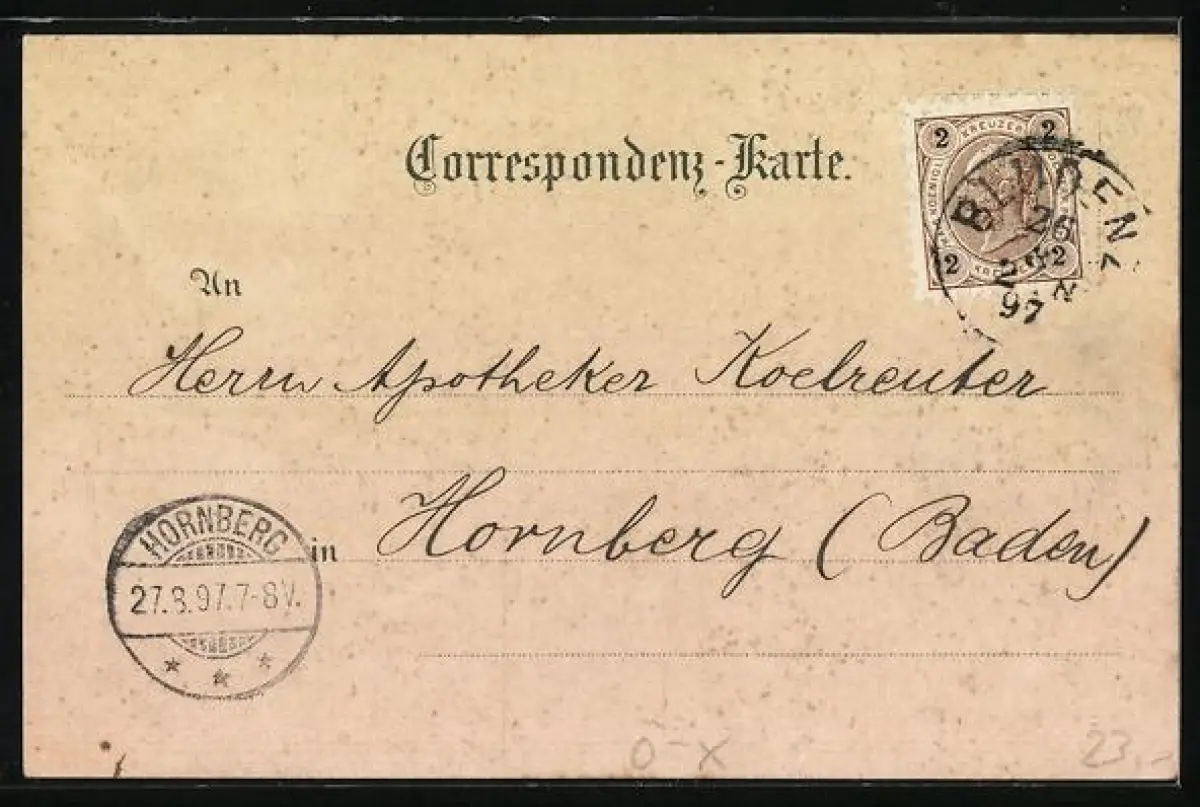 Correspondenz-Karte.
2 KREUZER 2
2 2
BLUDENZ
26
97
An
Herrn Apotheker Koelreuter
in Hornberg (Baden)
HORNBERG
27.8.97.7-8V.
O-X
23.-